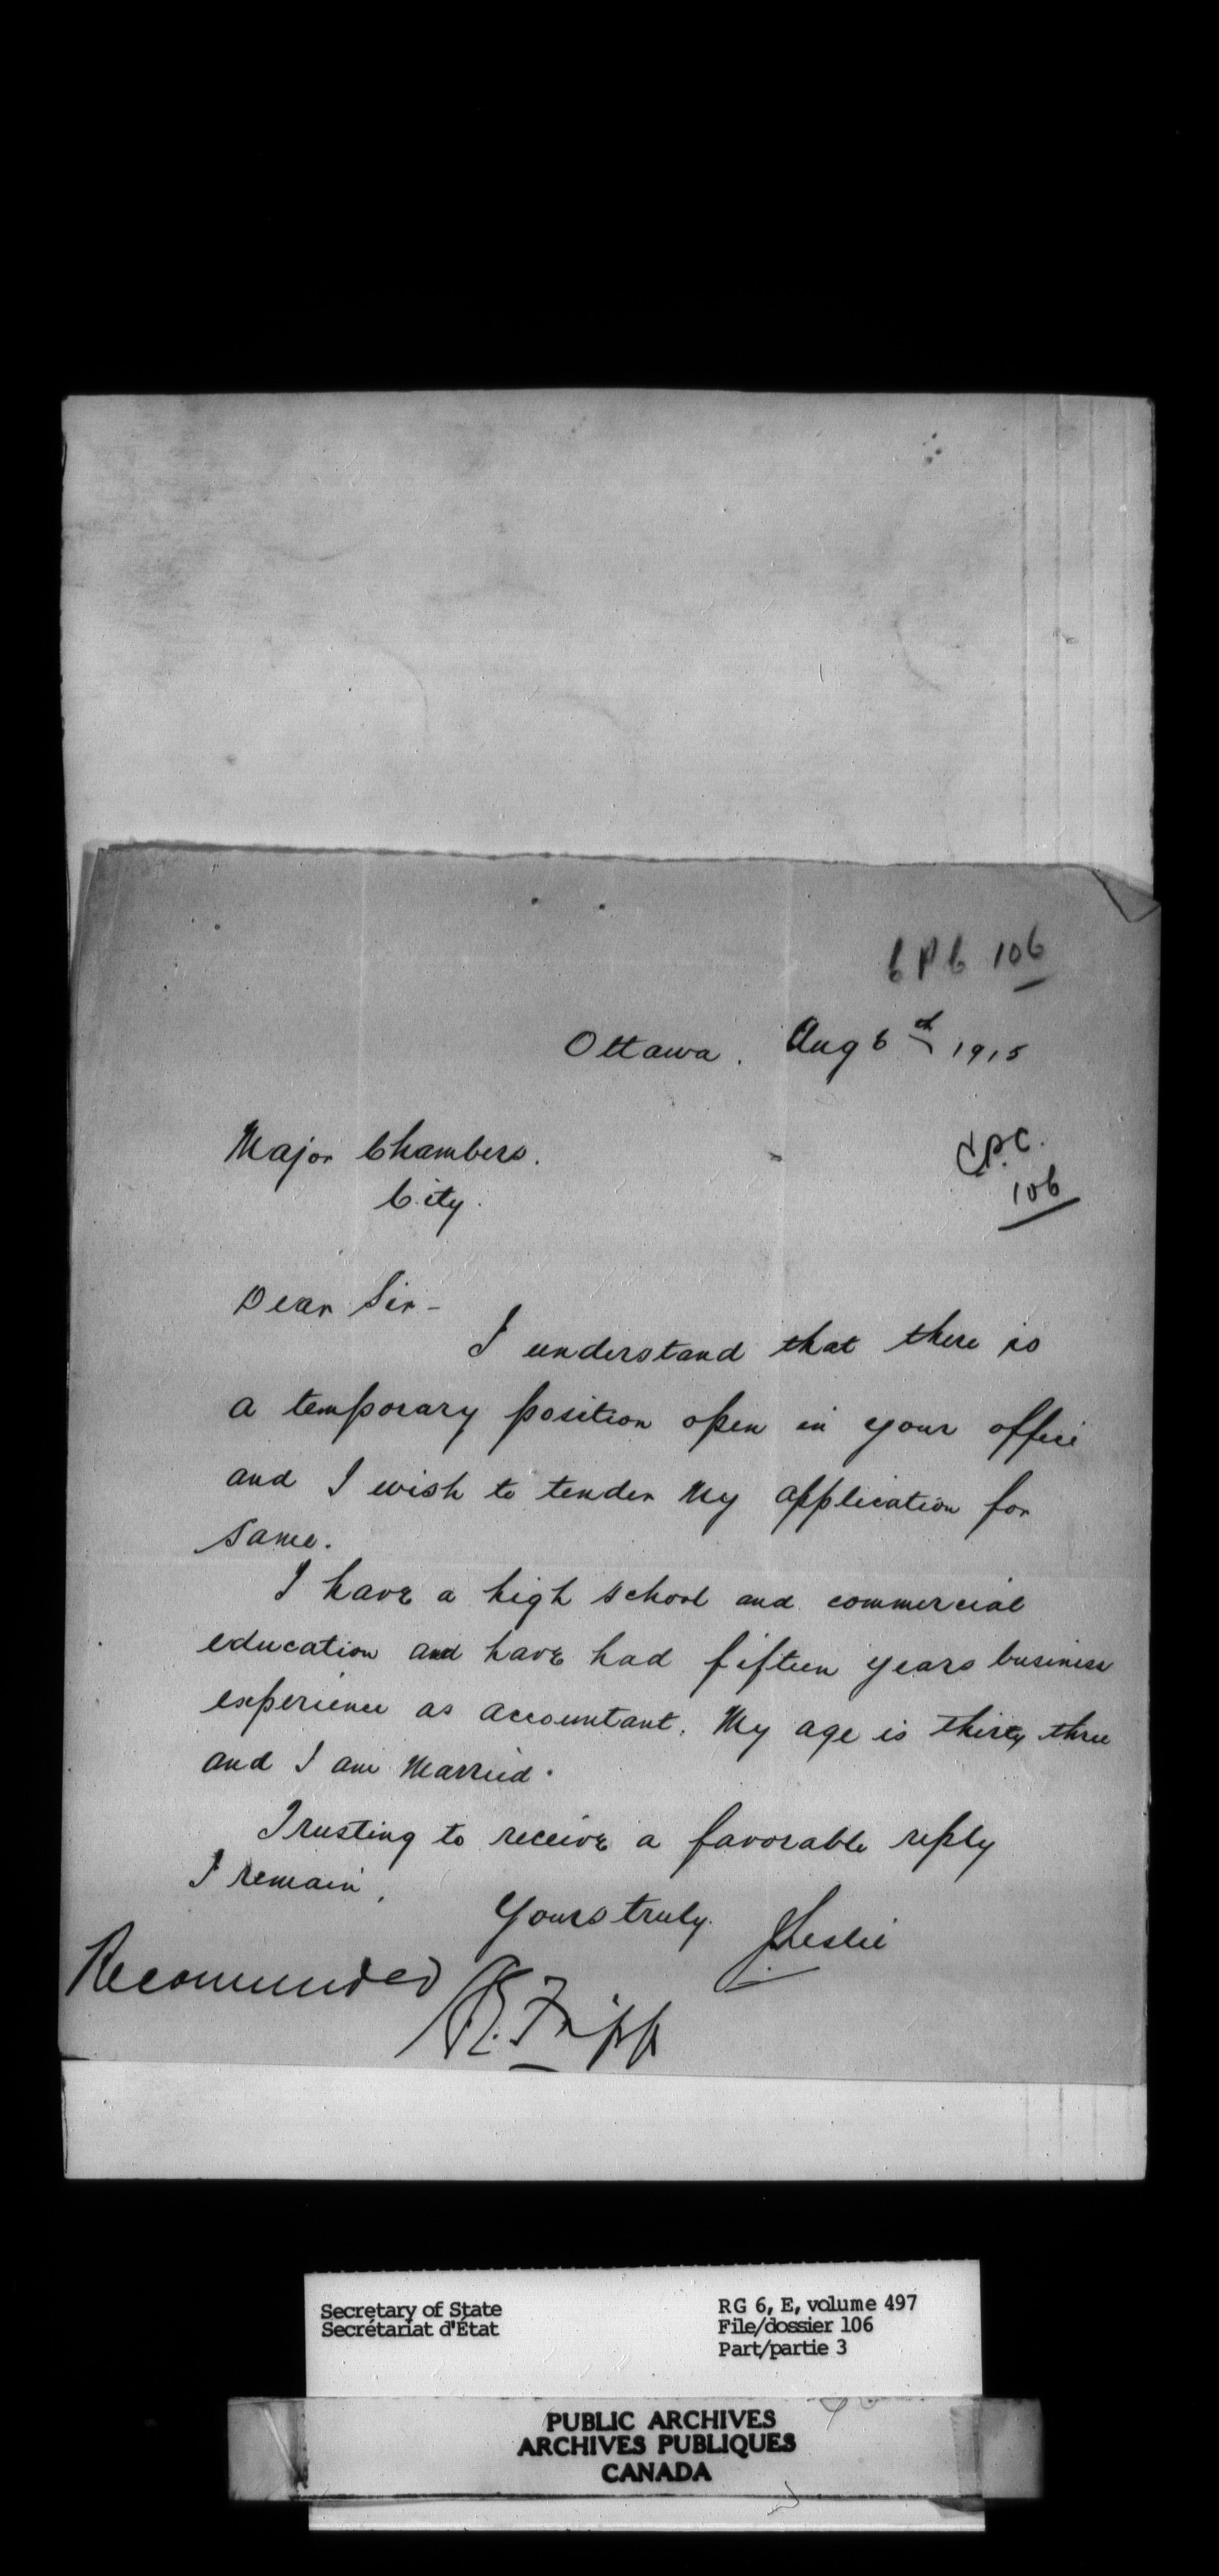 C P C 106
Ottawa. Aug 6th 1915
Major Chambers.
City.
C.P.C.
106
Dear Sir-
I understand that there is
a temporary position open in your office
and I wish to tender my application for
same.
I have a high school and commercial
education and have had fifteen years business
experience as accountant. My age is thirty three
and I am married.
Trusting to receive a favorable reply
I remain,
Yours truly. J Leslie
Recommended
Fripp
Secretary of State
Secrétariat d'État
RG 6, E, volume 497
File/dossier 106
Part/partie 3
PUBLIC ARCHIVES
ARCHIVES PUBLIQUES
CANADA